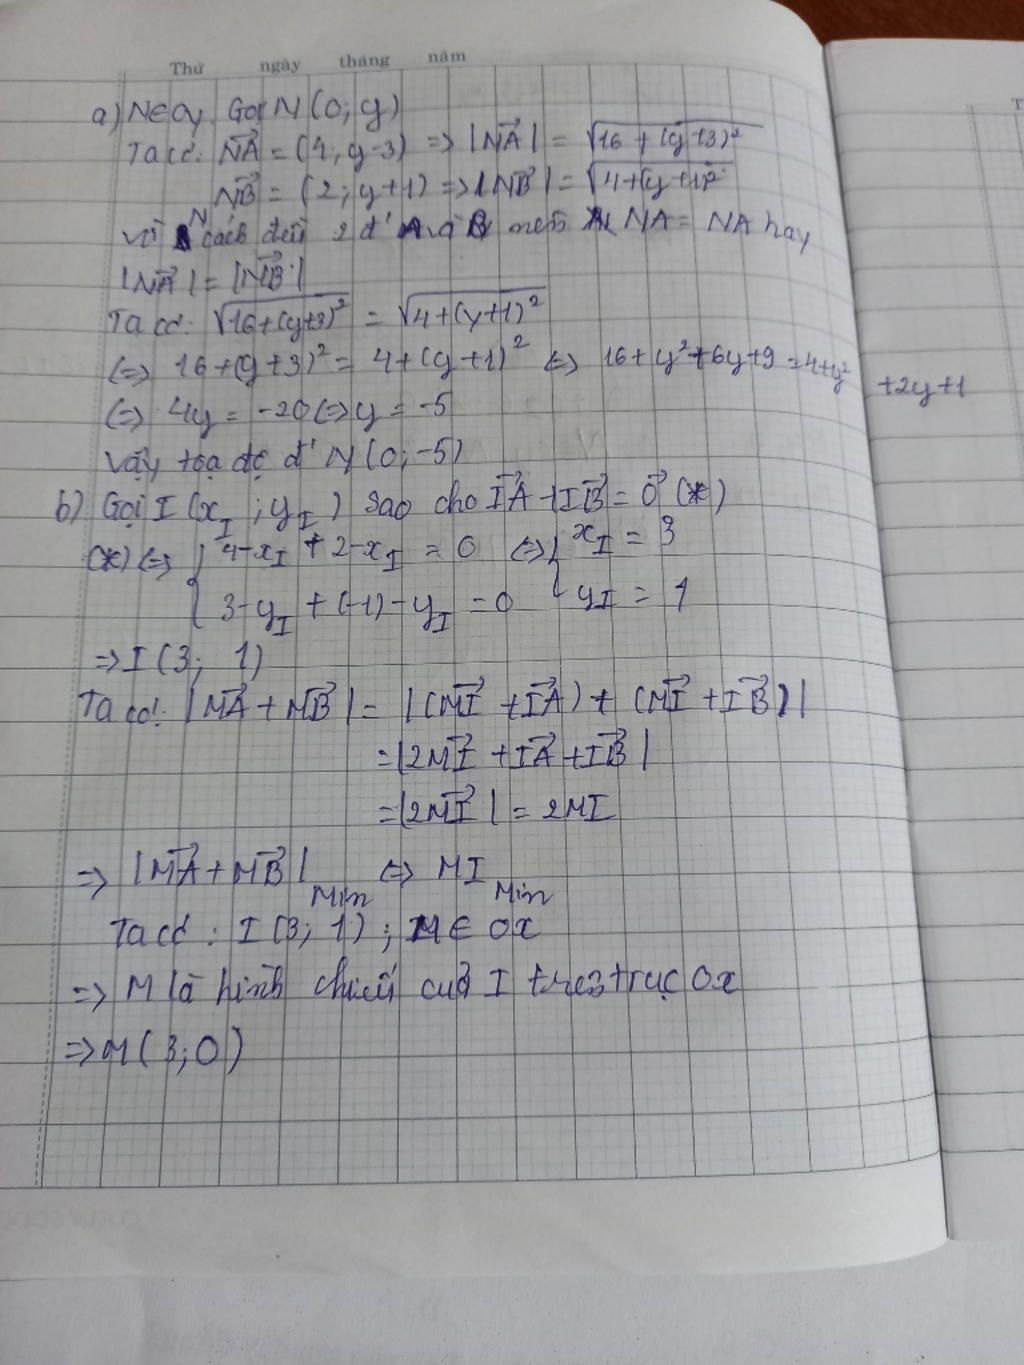 Thứ ngày tháng năm
a) N∈Oy. Gọi N(0;y)
Ta có: NA→ = (4; y-3) => |NA→| = √(16 + (y+3)²)
NB→ = (2; y+1) => |NB→| = √(4+(y+1)²)
Vì N cách đều 2 đ' A và B nên NA = NA hay
|NA→| = |NB→|
Ta có: √(16+(y+3)²) = √(4+(y+1)²)
<=> 16+(y+3)² = 4+(y+1)² <=> 16+y²+6y+9 = 4+y² +2y+1
<=> 4y = -20 <=> y = -5
Vậy tọa độ đ' N(0;-5)
b) Gọi I(x_I ; y_I) sao cho IA→ + IB→ = 0→ (*)
(*) <=> { 4-x_I + 2-x_I = 0 <=> { x_I = 3
3-y_I + (-1)-y_I = 0 y_I = 1
=> I(3; 1)
Ta có: |MA→ + MB→| = |(MI→ + IA→) + (MI→ + IB→)|
= |2MI→ + IA→ + IB→|
= |2MI→| = 2MI
=> |MA→ + MB→| Min <=> MI Min
Ta có: I(3; 1) ; M ∈ Ox
=> M là hình chiếu của I trục Ox
=> M(3;0)